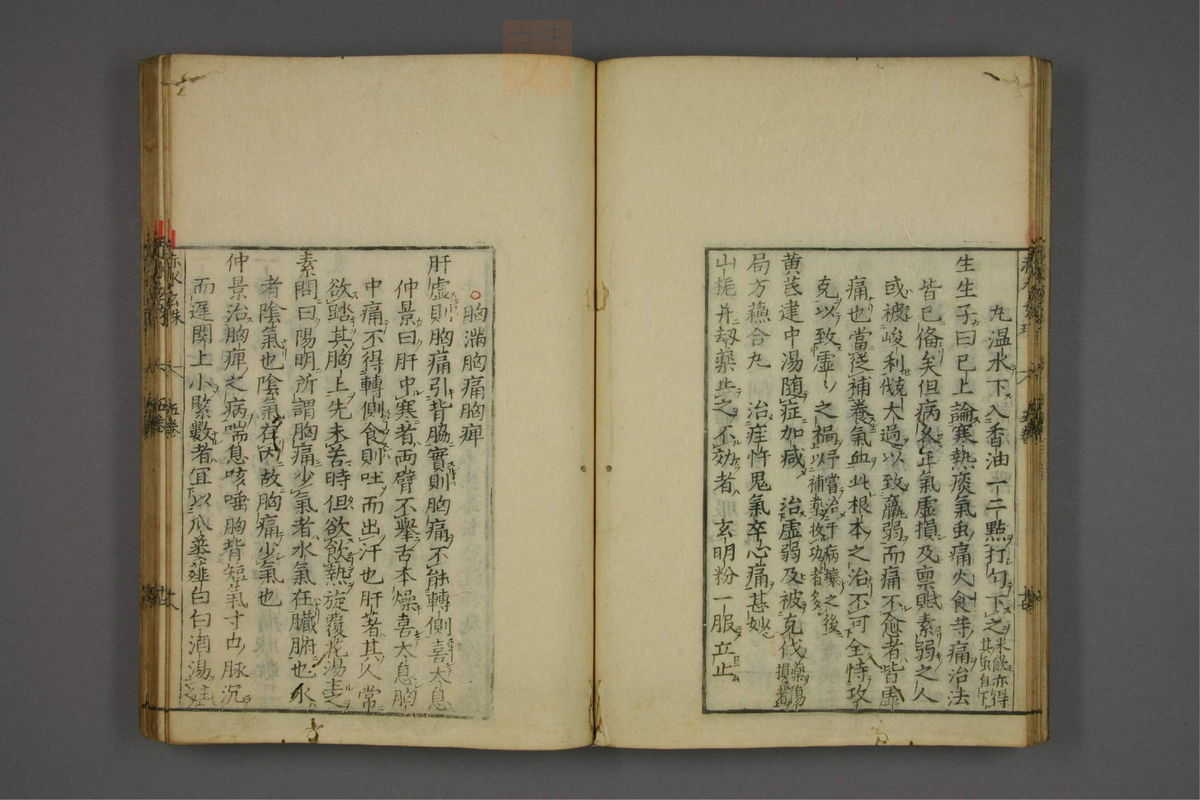 丸温水下入香油一二點打匀下之米飲亦得其虫自下
生生子曰已上論寒熱痰氣虫痛火食等痛治法
皆已備矣但病久正氣虛損及禀賦素弱之人
或被峻利伐大過以致羸弱而痛不愈者皆虛
痛也當從補養氣血此根本之治不可全恃攻
克以致虛虛之禍予嘗治于病壞之後以補藥收功者多矣
黄芪建中湯随症加减 治虛弱及被克伐藥傷損者
局方蘓合丸 治疰忤鬼氣卒心痛甚妙
山梔并刼藥止之不効者 玄明粉一服立止
胸滿胸痛胸痺
肝虛則胸痛引背脇實則胸痛不能轉側喜太息
仲景曰肝中寒者两臂不舉舌本燥喜太息胸
中痛不得轉側食則吐而出汗也肝著其人常
欲蹈其胸上先未苦時但欲飲熱旋覆花湯主之
素問曰陽明所謂胸痛少氣者水氣在臟腑也水
者陰氣也陰氣在内故胸痛少氣也
仲景治胸痺之病喘息咳唾胸背短氣寸口脉沉
而遲關上小緊數者宜以瓜蔞薤白白酒湯主
赤水玄珠 五卷